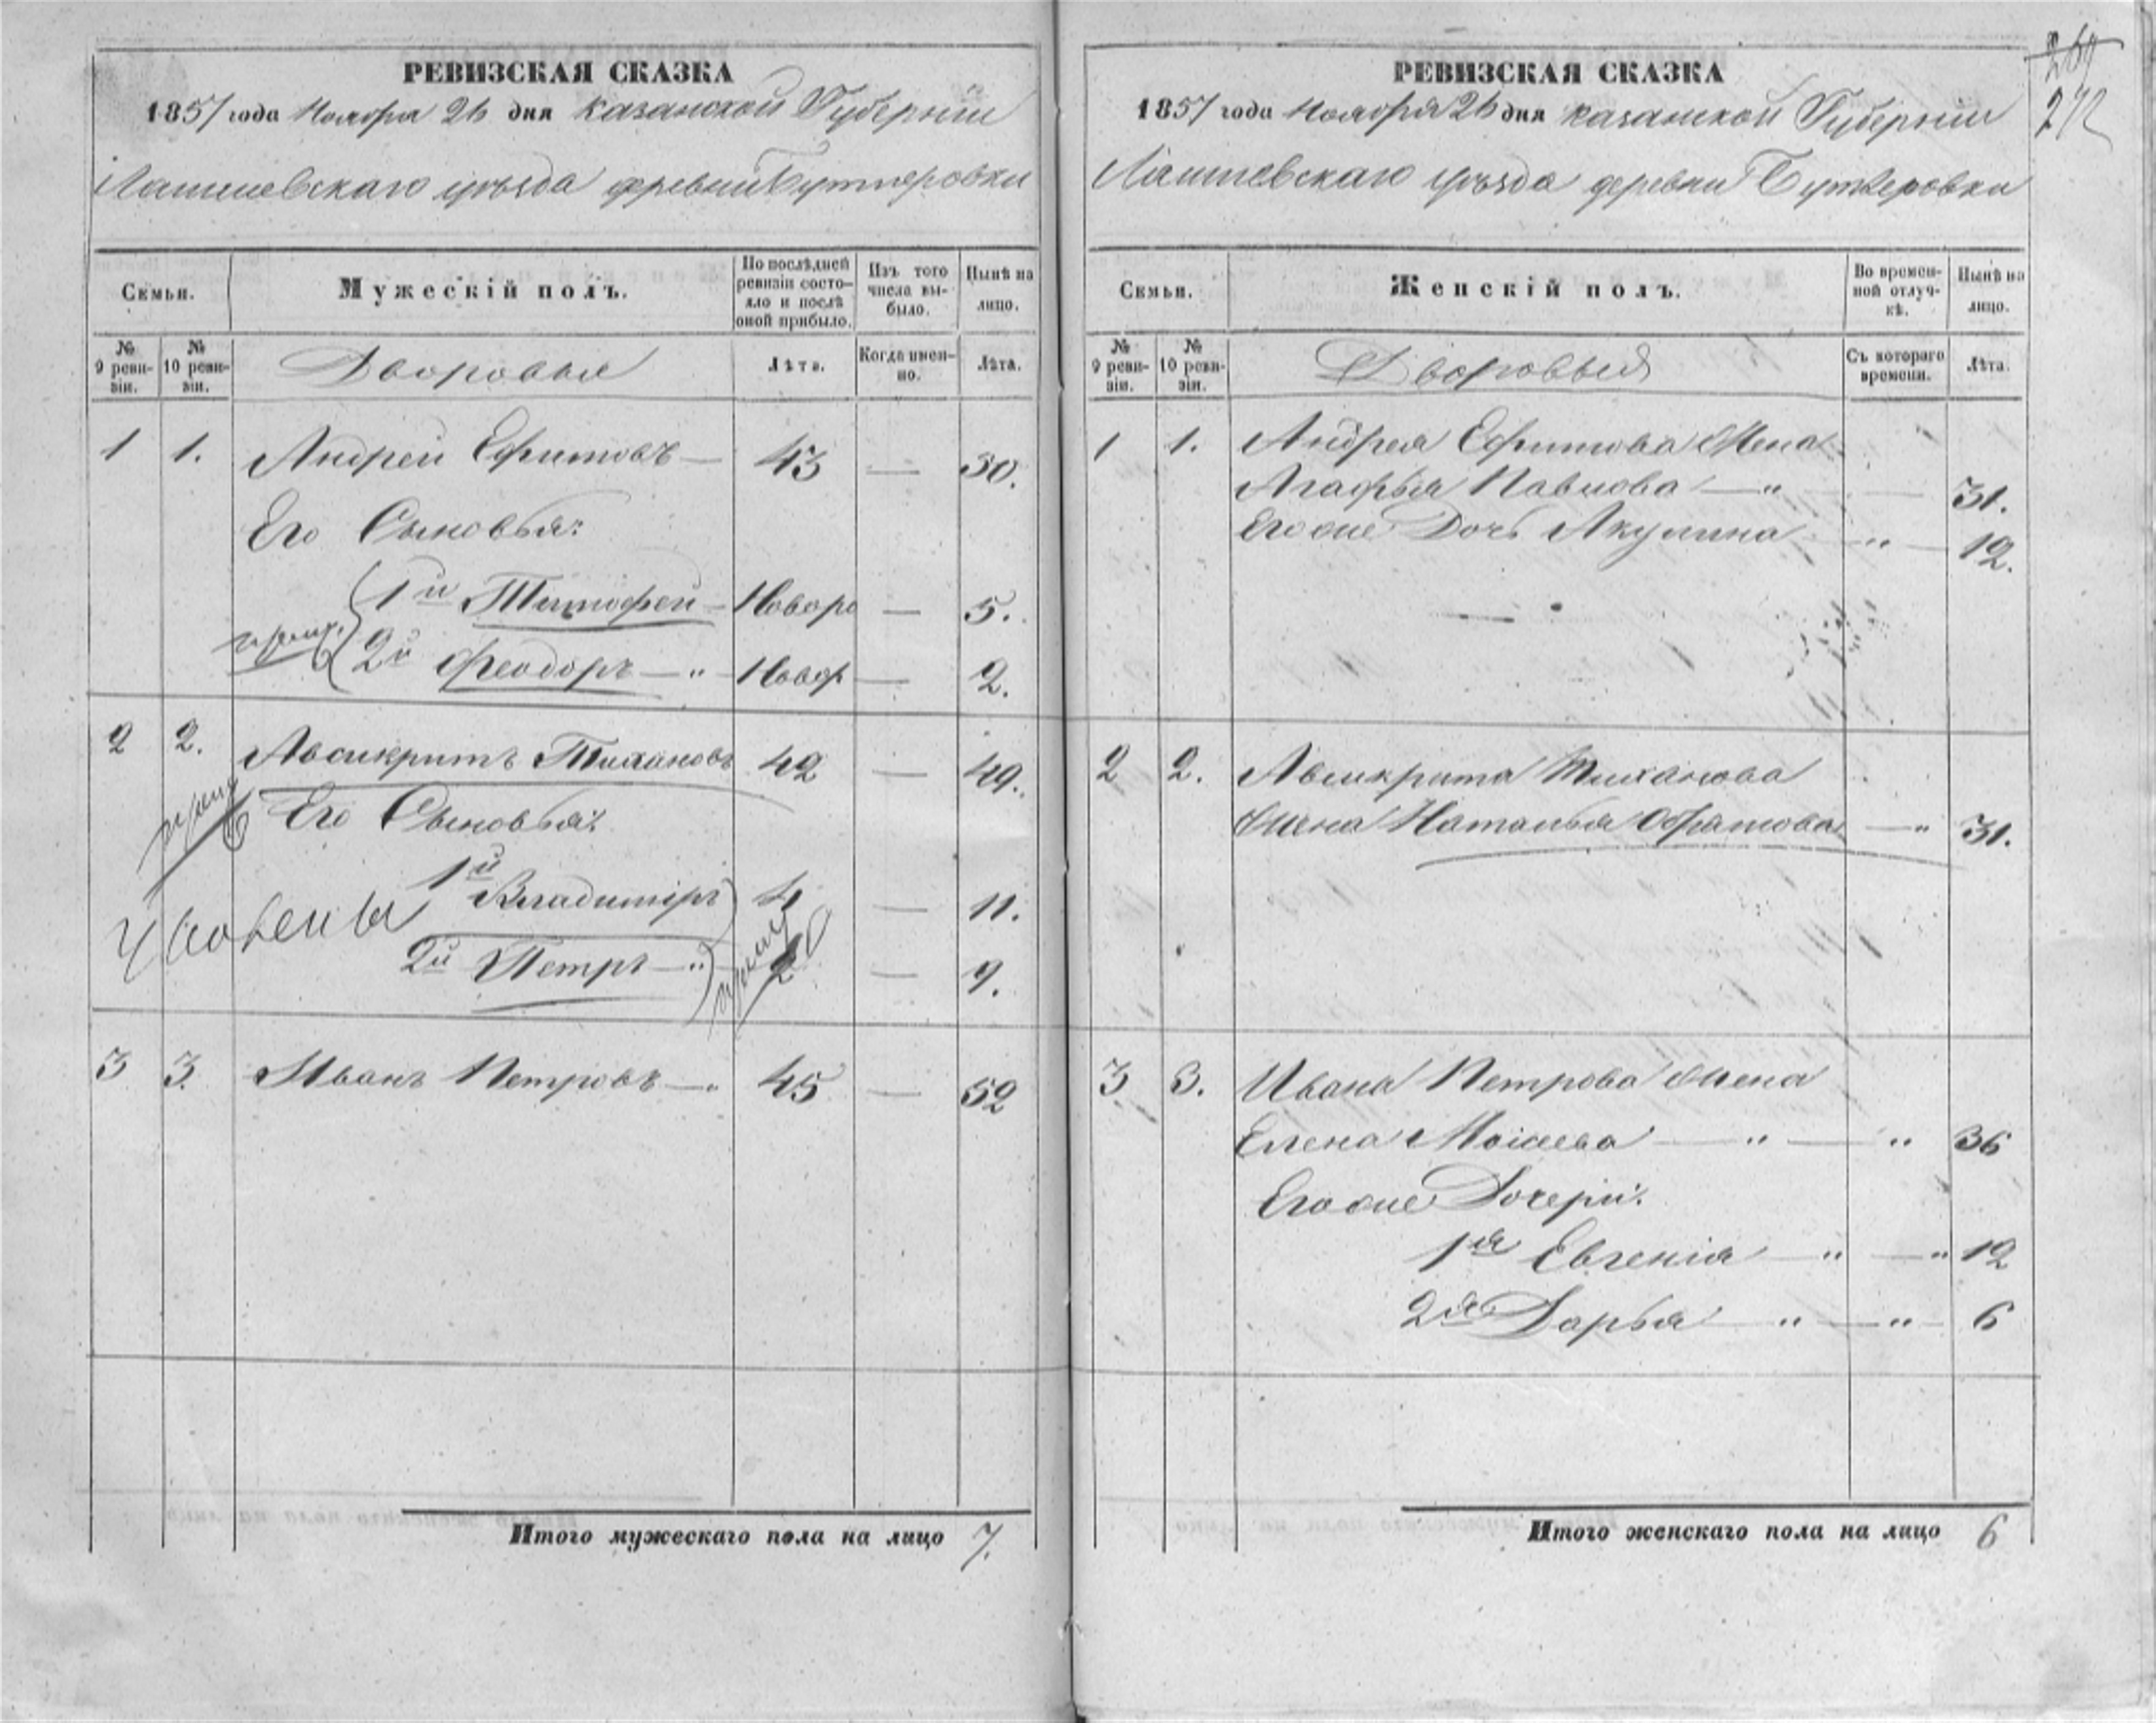 РЕВИЗСКАЯ СКАЗКА
1857 года Ноября 26 дня Казанской Губернiи
Лаишевскаго уѣзда деревни Бутлеровки
Семьи.
Мужескій полъ.
По послѣдней ревизіи состояло и послѣ оной прибыло.
Изъ того числа выбыло.
Нынѣ на лицо.
№ 9 ревизіи.
№ 10 ревизіи.
Дворовые
Лѣта.
Когда именно.
Лѣта.
1 1. Андрей Ефимовъ — 43 — 30.
Его Сыновья:
1й Тимофей — Новоро — 5.
2й Феодоръ — " — Новор — 2.
2 2. Авсикритъ Тихановъ 42 — 49.
Его Сыновья:
1й Владимiръ 4 — 11.
2й Петръ — " 2 — 9.
4 человека
3 3. Иванъ Петровъ — " 45 — 52
Итого мужескаго пола на лицо 7.
269
272
РЕВИЗСКАЯ СКАЗКА
1857 года Ноября 26 дня Казанской Губернiи
Лаишевскаго уѣзда деревни Бутлеровки
Семьи.
Женскій полъ.
Во временной отлучкѣ.
Нынѣ на лицо.
№ 9 ревизіи.
№ 10 ревизіи.
Дворовыя
Съ котораго времени.
Лѣта.
1 1. Андрея Ефимова Жена
Агафья Павлова — " — 31.
Его же Дочь Акулина " — 12.
2 2. Авсикрита Тиханова
Жена Наталья — " 31.
3 3. Ивана Петрова жена
Елена Моисеева — " — " 36
Его же Дочери:
1я Евгенiя — " — " 12
2я Дарья " — " — 6
Итого женскаго пола на лицо 6